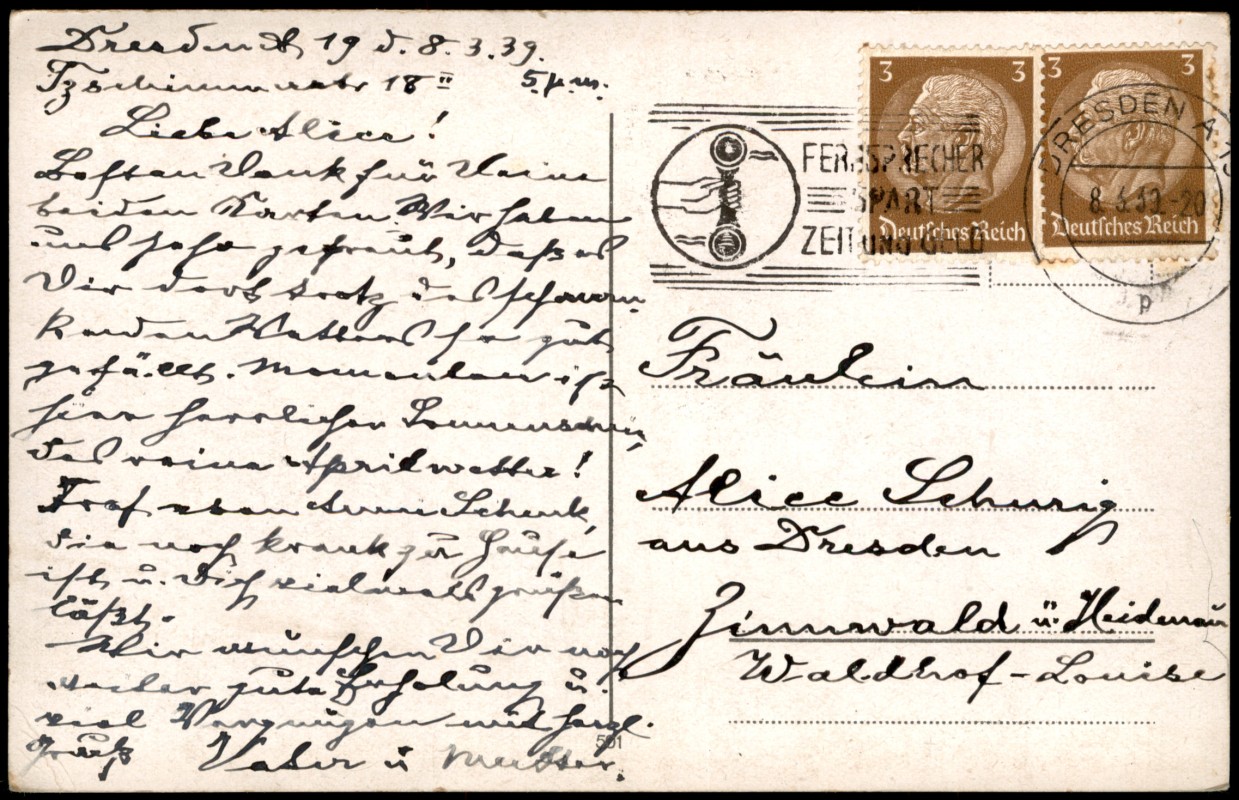 Dresden A 19 d. 8.3.39.
Tzschimmerstr 18 II 5 p.m.
Liebe Alice!
Besten Dank für Deine
beiden Karten. Wir haben
uns sehr gefreut, daß es
Dir dort trotz des schwan-
kenden Wetters so gut
gefällt. Momentan ist
hier herrlicher Sonnenschein,
das reine Aprilwetter!
Traf eben Schenk,
die noch krank zu Hause
ist u. Dich vielmals grüßen
läßt.
Wir wünschen Dir noch
weiter gute Erholung u.
viel Vergnügen mit herzl.
Gruß Vater u Mutter.
501
FERNSPRECHER
SPART
ZEIT UND GELD
3
Deutsches Reich
3 3
Deutsches Reich
DRESDEN A
8.3.39.-20
p
Fräulein
Alice Schurig
aus Dresden
Zinnwald ü. Heidenau
Waldhof-Louise